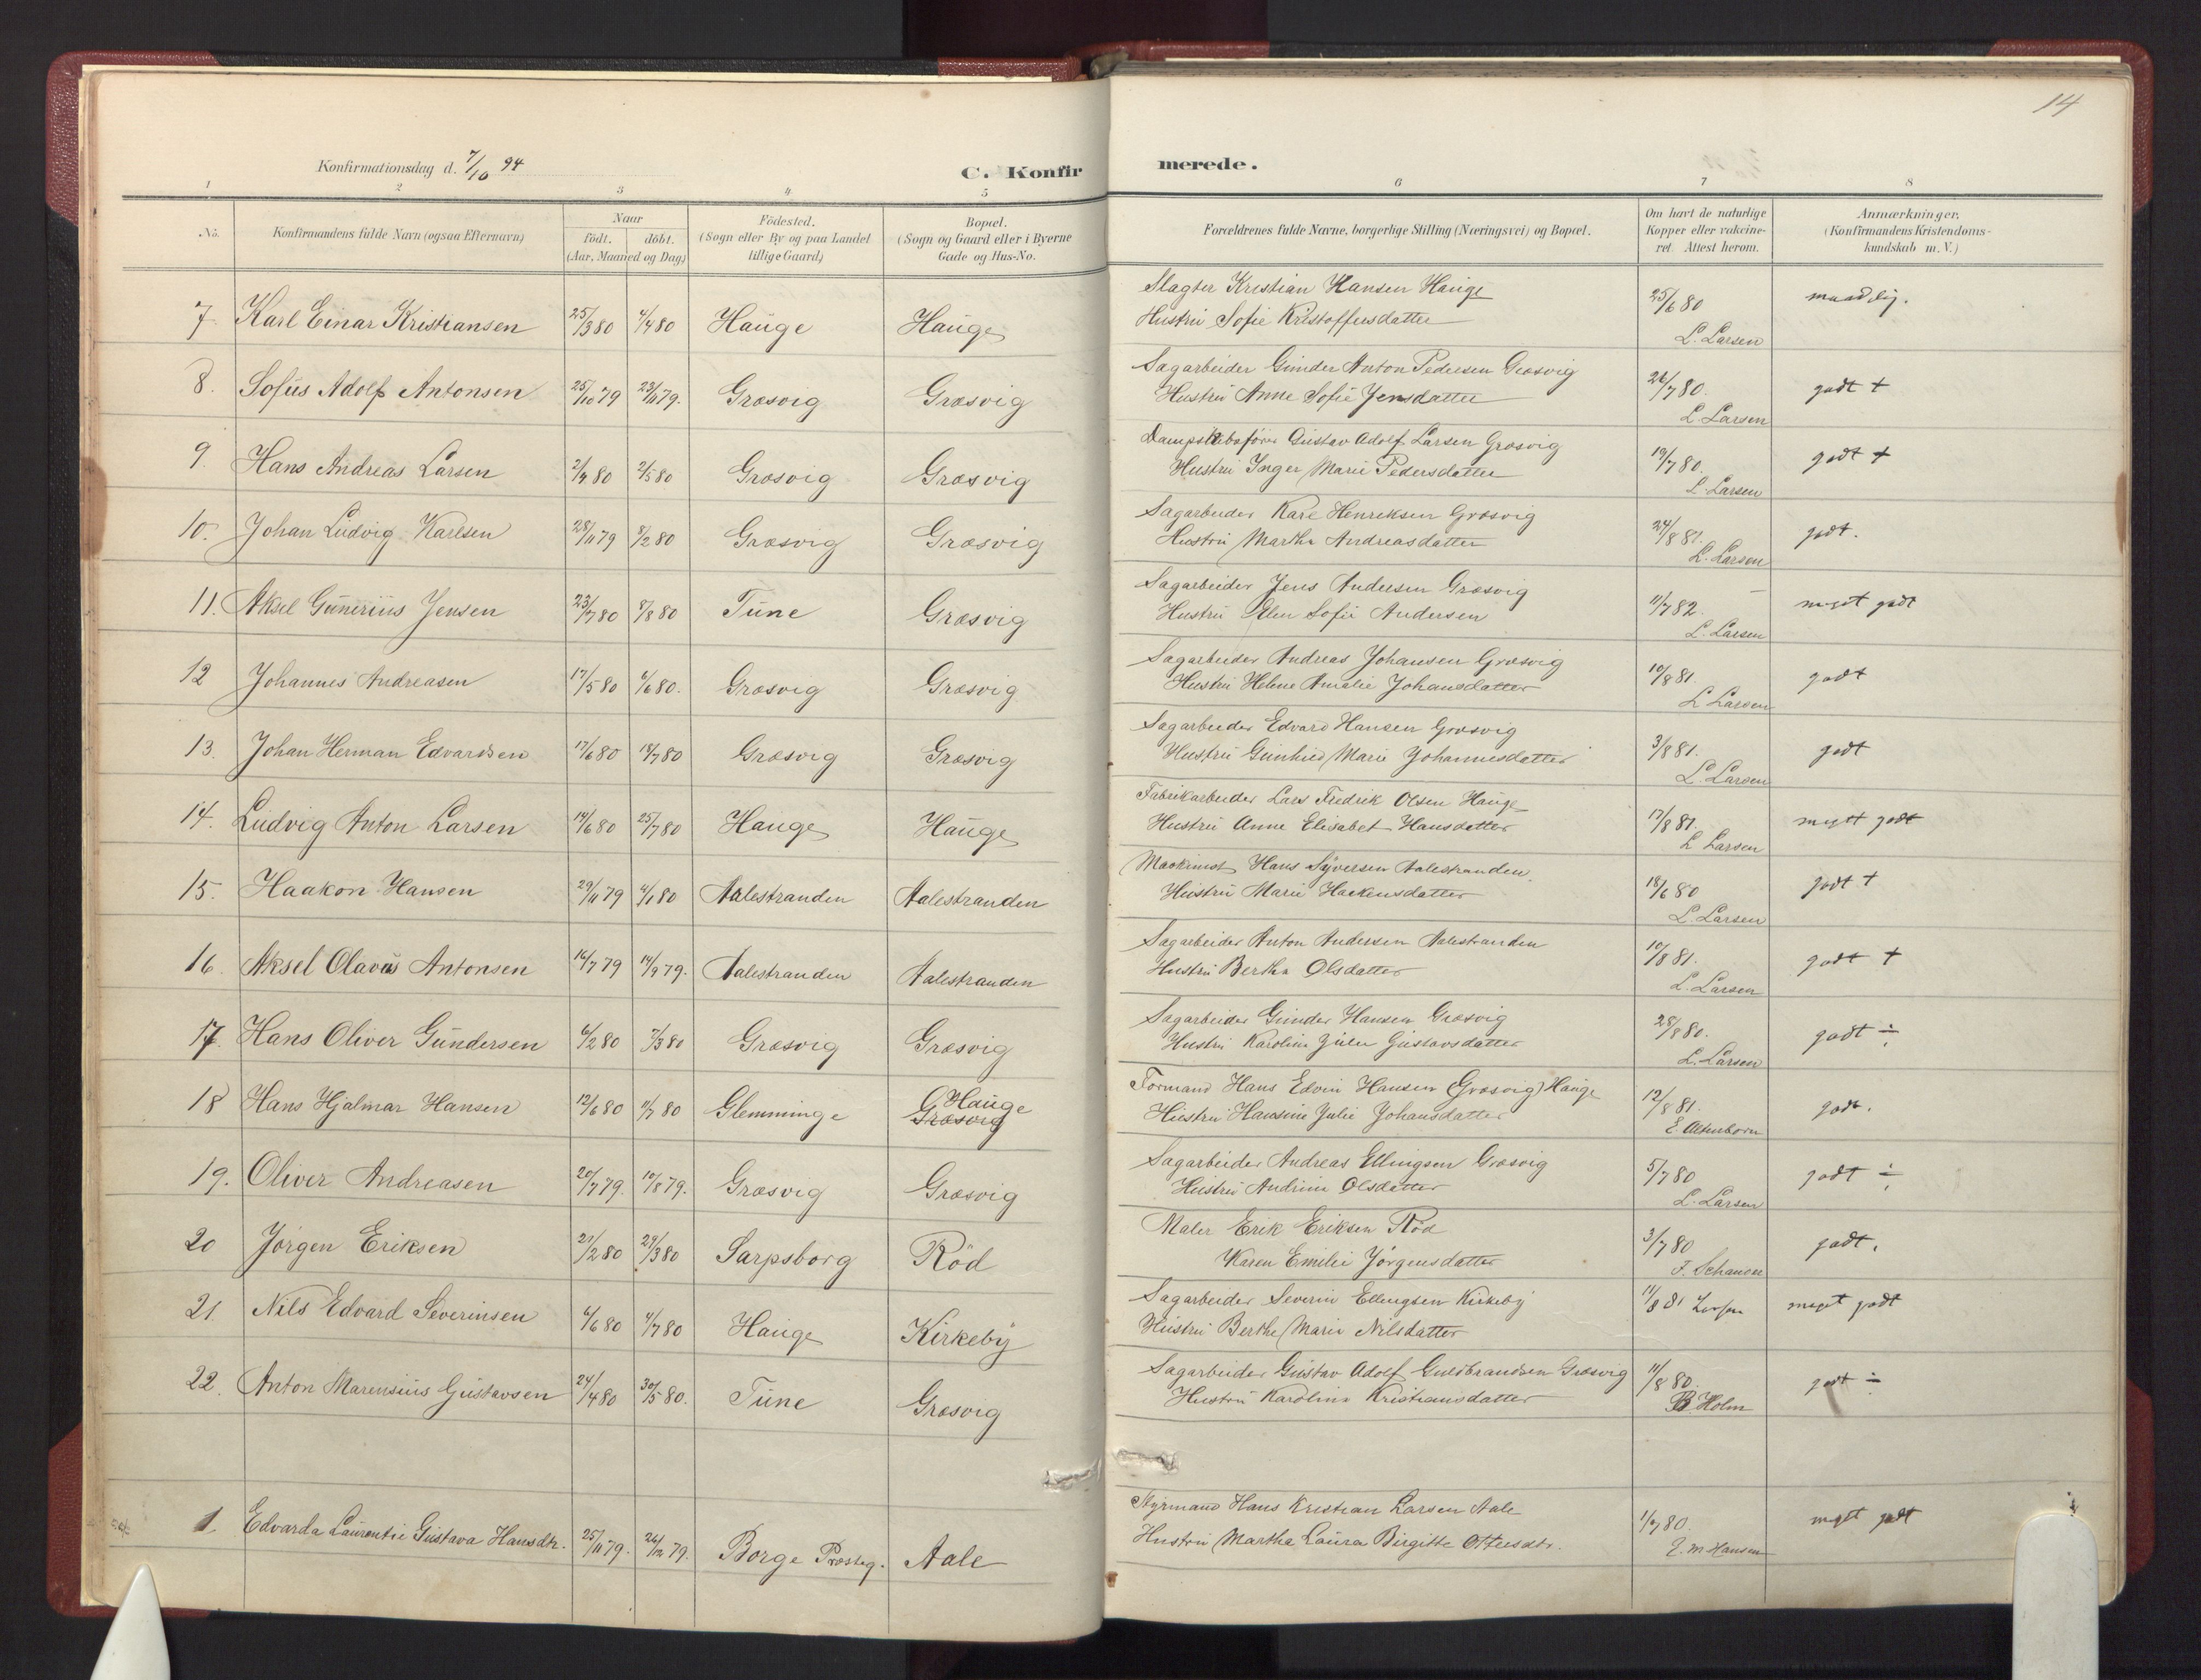 14
Konfirmationsdag d. 7/10 94
C. Konfirmerede.
1 2 3 4 5 6 7 8
No.
Konfirmandens fulde Navn (ogsaa Efternavn)
Naar
födt. döbt.
(Aar, Maaned og Dag)
Födested.
(Sogn eller By og paa Landet
tillige Gaard)
Bopæl.
(Sogn og Gaard eller i Byerne
Gade og Hus-No.
Forældrenes fulde Navne, borgerlige Stilling (Næringsvei) og Bopæl.
Om havt de naturlige
Kopper eller vakcine-
ret. Attest herom.
Anmærkninger.
(Konfirmandens Kristendoms-
kundskab m. V.)
7 Karl Einar Kristiansen 25/3 80 4/4 80 Hauge Hauge Slagter Kristian Hansen Hauge 25/6 80 maadelig.
Hustru Sofie Kristoffersdatter L. Larsen
8. Sofus Adolf Antonsen 25/10 79 23/11 79. Græsvig Græsvig Sagarbeider Gunder Anton Pedersen Græsvig 26/7 80. godt +
Hustru Anne Sofie Jensdatter L Larsen
9. Hans Andreas Larsen 2/4 80 2/5 80 Græsvig Græsvig Dampskibsfører Gustav Adolf Larsen Græsvig 19/7 80. godt +
Hustru Inger Marie Pedersdatter L. Larsen
10. Johan Ludvig Karlsen 28/11 79 8/2 80 Græsvig Græsvig Sagarbeider Karl Henriksen Græsvig 24/8 81. godt.
Hustru Marthe Andreasdatter L. Larsen
11. Aksel Gunerius Jensen 23/7 80 8/8 80 Tune Græsvig Sagarbeider Jens Andersen Græsvig 11/7 82. meget godt
Hustru Elen Sofie Andersen L. Larsen
12 Johannes Andreasen 17/5 80 6/6 80. Græsvig Græsvig Sagarbeider Andreas Johansen Græsvig 10/8 81. godt
Hustru Helene Amalie Johansdatter L Larsen
13. Johan Herman Edvardsen 17/6 80 18/7 80 Græsvig Græsvig Sagarbeider Edvard Hansen Græsvig 3/8 81. godt
Hustru Gunhild Marie Johannesdatter L. Larsen
14. Ludvig Anton Larsen 14/6 80 25/7 80 Hauge Hauge Fabrikarbeider Lars Fredrik Olsen Hauge 17/8 81. meget godt
Hustru Anne Elisabet Hansdatter L Larsen
15. Haakon Hansen 29/11 79 4/1 80 Aalestranden Aalestranden Maskinist Hans Syversen Aalestranden 18/6 80 godt +
Hustru Marie Haakensdatter L. Larsen
16. Aksel Olavus Antonsen 16/7 79 14/9 79. Aalestranden Aalestranden Sagarbeider Anton Andersen Aalestranden 10/8 81. godt +
Hustru Berthe Olsdatter L. Larsen
17. Hans Oliver Gundersen 6/2 80 7/3 80 Græsvig Græsvig Sagarbeider Gunder Hansen Græsvig 28/8 80. godt ÷
Hustru Karoline Julie Gustavsdatter L. Larsen
18 Hans Hjalmar Hansen 12/6 80 11/7 80 Glemminge Hauge Græsvig Formand Hans Edvin Hansen (Græsvig) Hauge 12/8 81. godt.
Hustru Hansine Julie Johansdatter E. Altenborn
19. Oliver Andreasen 20/7 79. 10/8 79. Græsvig Græsvig Sagarbeider Andreas Ellingsen Græsvig 5/7 80 godt ÷
Hustru Andrine Olsdatter L. Larsen
20 Jørgen Eriksen 21/2 80 29/3 80 Sarpsborg Röd Maler Erik Eriksen Röd 3/7 80 godt.
Karen Emilie Jørgensdatter
21. Nils Edvard Severinsen 6/6 80 4/7 80 Hauge Kirkeby Sagarbeider Severin Ellingsen Kirkeby 11/8 81 Larsen meget godt
Hustru Berthe Marie Nilsdatter
22. Anton Marensius Gustavsen 24/4 80 30/5 80. Tune Græsvig Sagarbeider Gustav Adolf Guldbrandsen Græsvig 11/8 80. godt ÷
Hustru Karoline Kristiansdatter B Holm
1. Edvarda Laurentie Gustava Hansdtr. 25/11 79. 26/12 79. Borge Præsteg. Aale Styrmand Hans Kristian Larsen Aale 1/7 80. meget godt
Hustru Martha Laura Birgitte Ottersdtr. E. M Hansen